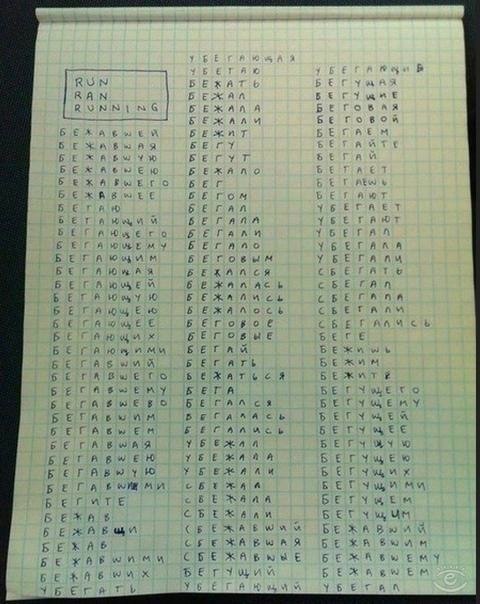 RUN
RAN
RUNNING
БЕЖАВШЕЙ
БЕЖАВШАЯ
БЕЖАВШУЮ
БЕЖАВШЕЮ
БЕЖАВШЕГО
БЕЖАВШЕЕ
БЕГАЮ
БЕГАЮЩИЙ
БЕГАЮЩЕГО
БЕГАЮЩЕМУ
БЕГАЮЩИМ
БЕГАЮЩАЯ
БЕГАЮЩЕЙ
БЕГАЮЩУЮ
БЕГАЮЩЕЮ
БЕГАЮЩЕЕ
БЕГАЮЩИХ
БЕГАЮЩИМИ
БЕГАВШИЙ
БЕГАВШЕГО
БЕГАВШЕМУ
БЕГАВШЕВО
БЕГАВШИМ
БЕГАВШЕМ
БЕГАВШАЯ
БЕГАВШЕЮ
БЕГАВШУЮ
БЕГАВШИМИ
БЕГИТЕ
БЕЖАВ
БЕЖАВЩИ
БЕЖАВ
БЕЖАВШИМИ
БЕЖАВШИХ
УБЕГАТЬ
УБЕГАЮЩАЯ
УБЕГАЮ
БЕЖАТЬ
БЕЖАЛ
БЕЖАЛА
БЕЖАЛИ
БЕЖИТ
БЕГУ
БЕГУТ
БЕЖАЛО
БЕГ
БЕГОМ
БЕГАЛ
БЕГАЛА
БЕГАЛИ
БЕГАЛО
БЕГОВЫМ
БЕЖАЛСЯ
БЕЖАЛАСЬ
БЕЖАЛИСЬ
БЕЖАЛОСЬ
БЕГОВОЕ
БЕГОВЫЕ
БЕГАЙ
БЕГАТЬ
БЕЖАТЬСЯ
БЕГА
БЕГАЛСЯ
БЕГАЛАСЬ
БЕГАЛИСЬ
УБЕЖАЛ
УБЕЖАЛА
УБЕЖАЛИ
СБЕЖАЛ
СБЕЖАЛА
СБЕЖАЛИ
СБЕЖАВШИЙ
СБЕЖАВШАЯ
СБЕЖАВШЫЕ
БЕГУЩИЙ
УБЕГАЮЩИЙ
УБЕГАЮЩИЕ
БЕГУЩАЯ
БЕГУЩИЕ
БЕГОВАЯ
БЕГОВОЙ
БЕГАЕМ
БЕГАЙТЕ
БЕГАЙ
БЕГАЕТ
БЕГАЕШЬ
БЕГАЮТ
УБЕГАЕТ
УБЕГАЮТ
УБЕГАЛ
УБЕГАЛА
УБЕГАЛИ
СБЕГАТЬ
СБЕГАЛ
СБЕГАЛА
СБЕГАЛИ
СБЕГАЛИСЬ
БЕГЕ
БЕЖИШЬ
БЕЖИМ
БЕЖИТЕ
БЕГУЩЕГО
БЕГУЩЕМУ
БЕГУЩЕЙ
БЕГУЩЕЕ
БЕГУЩУЮ
БЕГУЩЕЮ
БЕГУЩИХ
БЕГУЩИМИ
БЕГУЩЕМ
БЕГУЩИМ
БЕЖАВШИЙ
БЕЖАВШИМ
БЕЖАВШЕМУ
БЕЖАВШЕМ
УБЕГАЛ